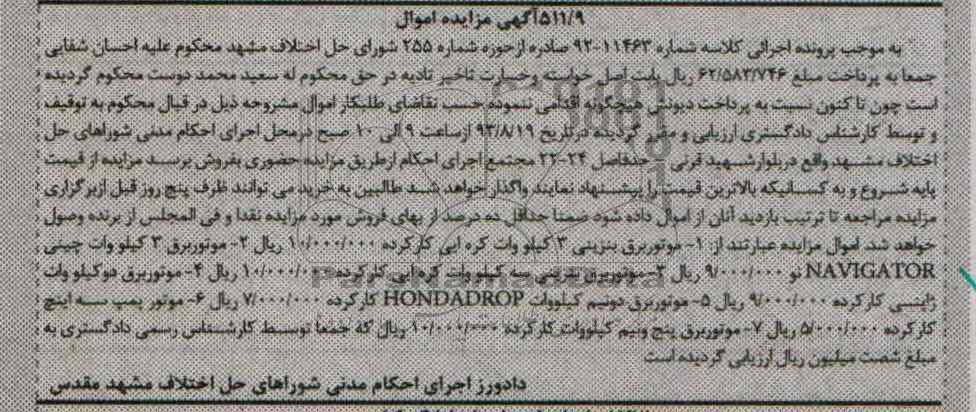 ۵۱۱/۹آگهی مزایده اموال
به موجب پرونده اجرائی کلاسه شماره ۱۱۴۶۳-۹۲ صادره ازحوزه شماره ۲۵۵ شورای حل اختلاف مشهد محکوم علیه احسان شفایی
جمعا به پرداخت مبلغ ۶۲/۵۸۳/۷۴۶ ریال بابت اصل خواسته وخسارت تاخیر تادیه در حق محکوم له سعید محمد دوست محکوم گردیده
است چون تا کنون نسبت به پرداخت دیونش هیچگونه اقدامی ننموده حسب تقاضای طلبکار اموال مشروحه ذیل در قبال محکوم به توقیف
و توسط کارشناس دادگستری ارزیابی و مقرر گردیده درتاریخ ۹۳/۸/۱۹ ازساعت ۹ الی ۱۰ صبح درمحل اجرای احکام مدنی شوراهای حل
اختلاف مشهد واقع دربلوارشهید قرنی – حدفاصل ۲۴-۲۲ مجتمع اجرای احکام ازطریق مزایده حضوری بفروش برسد مزایده از قیمت
پایه شروع و به کسانیکه بالاترین قیمت را پیشنهاد نمایند واگذار خواهد شد طالبین به خرید می توانند ظرف پنج روز قبل ازبرگزاری
مزایده مراجعه تا ترتیب بازدید آنان از اموال داده شود ضمنا حداقل ده درصد از بهای فروش مورد مزایده نقدا و فی المجلس از برنده وصول
خواهد شد. اموال مزایده عبارتند از: ۱- موتوربرق بنزینی ۳ کیلو وات کره ایی کارکرده ۱۰/۰۰۰/۰۰۰ ریال ۲- موتوربرق ۳ کیلو وات چینی
NAVIGATOR نو ۹/۰۰۰/۰۰۰ ریال ۳-موتوربرق بنزینی سه کیلو وات کره ایی کارکرده ۱۰/۰۰۰/۰۰۰ ریال ۴- موتوربرق دوکیلو وات
ژاپنی کارکرده ۹/۰۰۰/۰۰۰ ریال ۵- موتوربرق دونیم کیلووات HONDADROP کارکرده ۷/۰۰۰/۰۰۰ ریال ۶- موتور پمپ سه اینچ
کارکرده ۵/۰۰۰/۰۰۰ ریال ۷- موتوربرق پنج ونیم کیلووات کارکرده ۱۰/۰۰۰/۰۰۰ ریال که جمعا توسط کارشناس رسمی دادگستری به
مبلغ شصت میلیون ریال ارزیابی گردیده است
دادورز اجرای احکام مدنی شوراهای حل اختلاف مشهد مقدس
ParsNamadData